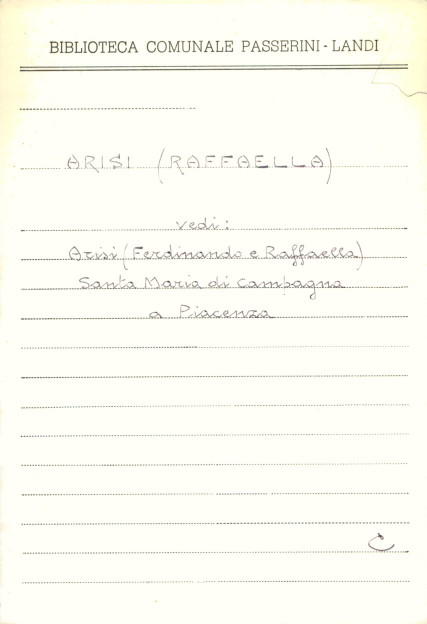 BIBLIOTECA COMUNALE PASSERINI - LANDI
ARISI (RAFFAELLA)
vedi:
Arisi (Ferdinando e Raffaella)
Santa Maria di Campagna
a Piacenza
C